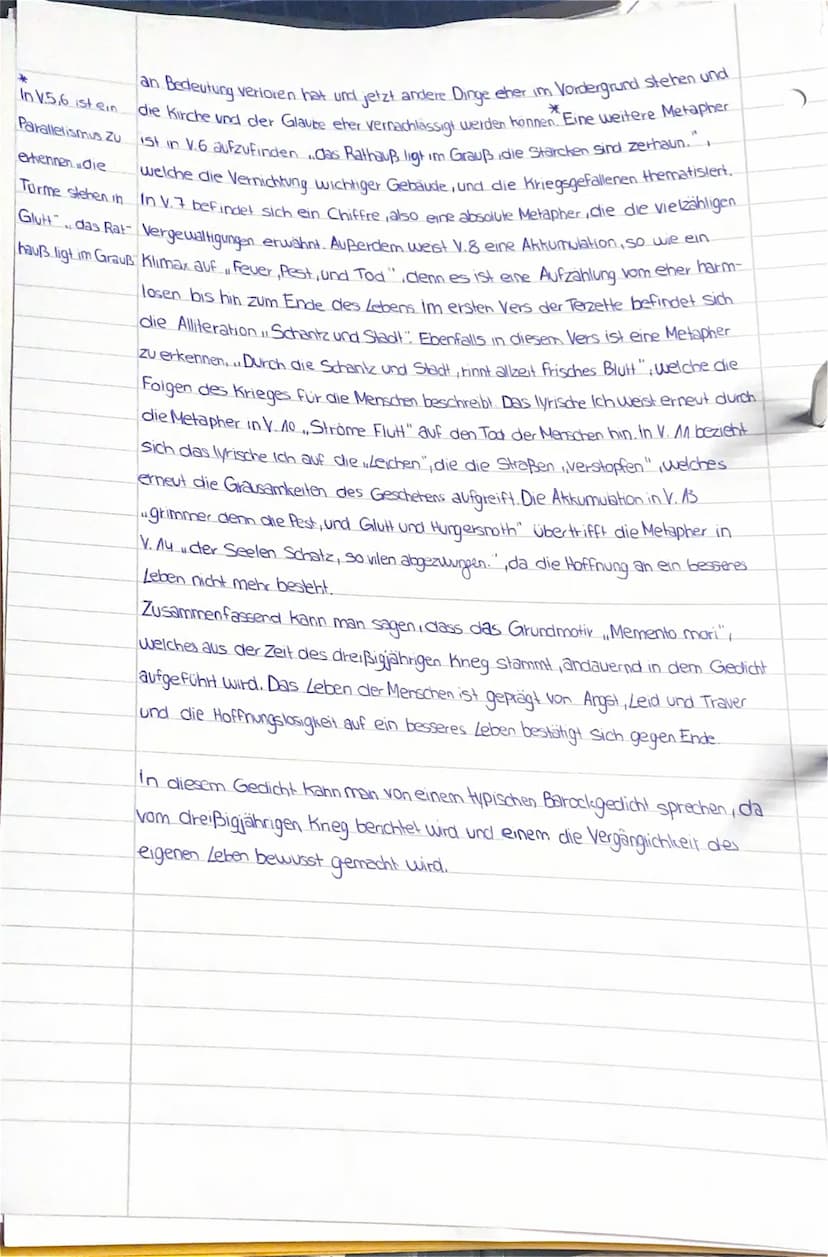 *
In V.5,6 ist ein
Parallelismus zu
erkennen „die
Türme stehen in
Glutt" „das Rat-
hauß ligt im Grauß"
an Bedeutung verloren hat und jetzt andere Dinge eher im Vordergrund stehen und
die Kirche und der Glaube eher vernachlässigt werden können.* Eine weitere Metapher
ist in V.6 aufzufinden „das Rathauß ligt im Grauß, die Starcken sind zerhaun.",
welche die Vernichtung wichtiger Gebäude, und die Kriegsgefallenen thematisiert.
In V.7 befindet sich ein Chiffre, also eine absolute Metapher, die die vielzähligen
Vergewaltigungen erwähnt. Außerdem weist V.8 eine Akkumulation, so wie ein
Klimax auf „Feuer, Pest, und Tod", denn es ist eine Aufzählung vom eher harm-
losen bis hin zum Ende des Lebens. Im ersten Vers der Terzette befindet sich
die Alliteration „Schantz und Stadt". Ebenfalls in diesem Vers ist eine Metapher
zu erkennen, „Durch die Schantz und Stadt, rinnt allzeit frisches Blutt", welche die
Folgen des Krieges für die Menschen beschreibt. Das lyrische Ich weist erneut durch
die Metapher in V. 10 „Ströme Flutt" auf den Tod der Menschen hin. In V. 11 bezieht
sich das lyrische Ich auf die „Leichen", die die Straßen „verstopfen", welches
erneut die Grausamkeiten des Geschehens aufgreift. Die Akkumulation in V. 13
„grimmer denn die Pest, und Glutt und Hungersnoth" übertrifft die Metapher in
V. 14 „der Seelen Schatz, so vilen abgezwungen.", da die Hoffnung an ein besseres
Leben nicht mehr besteht.
Zusammenfassend kann man sagen, dass das Grundmotiv „Memento mori",
welches aus der Zeit des dreißigjährigen Krieg stammt, andauernd in dem Gedicht
aufgeführt wird. Das Leben der Menschen ist geprägt von Angst, Leid und Trauer
und die Hoffnungslosigkeit auf ein besseres Leben bestätigt sich gegen Ende.
In diesem Gedicht kann man von einem typischen Barockgedicht sprechen, da
vom dreißigjährigen Krieg berichtet wird und einem die Vergänglichkeit des
eigenen Leben bewusst gemacht wird.